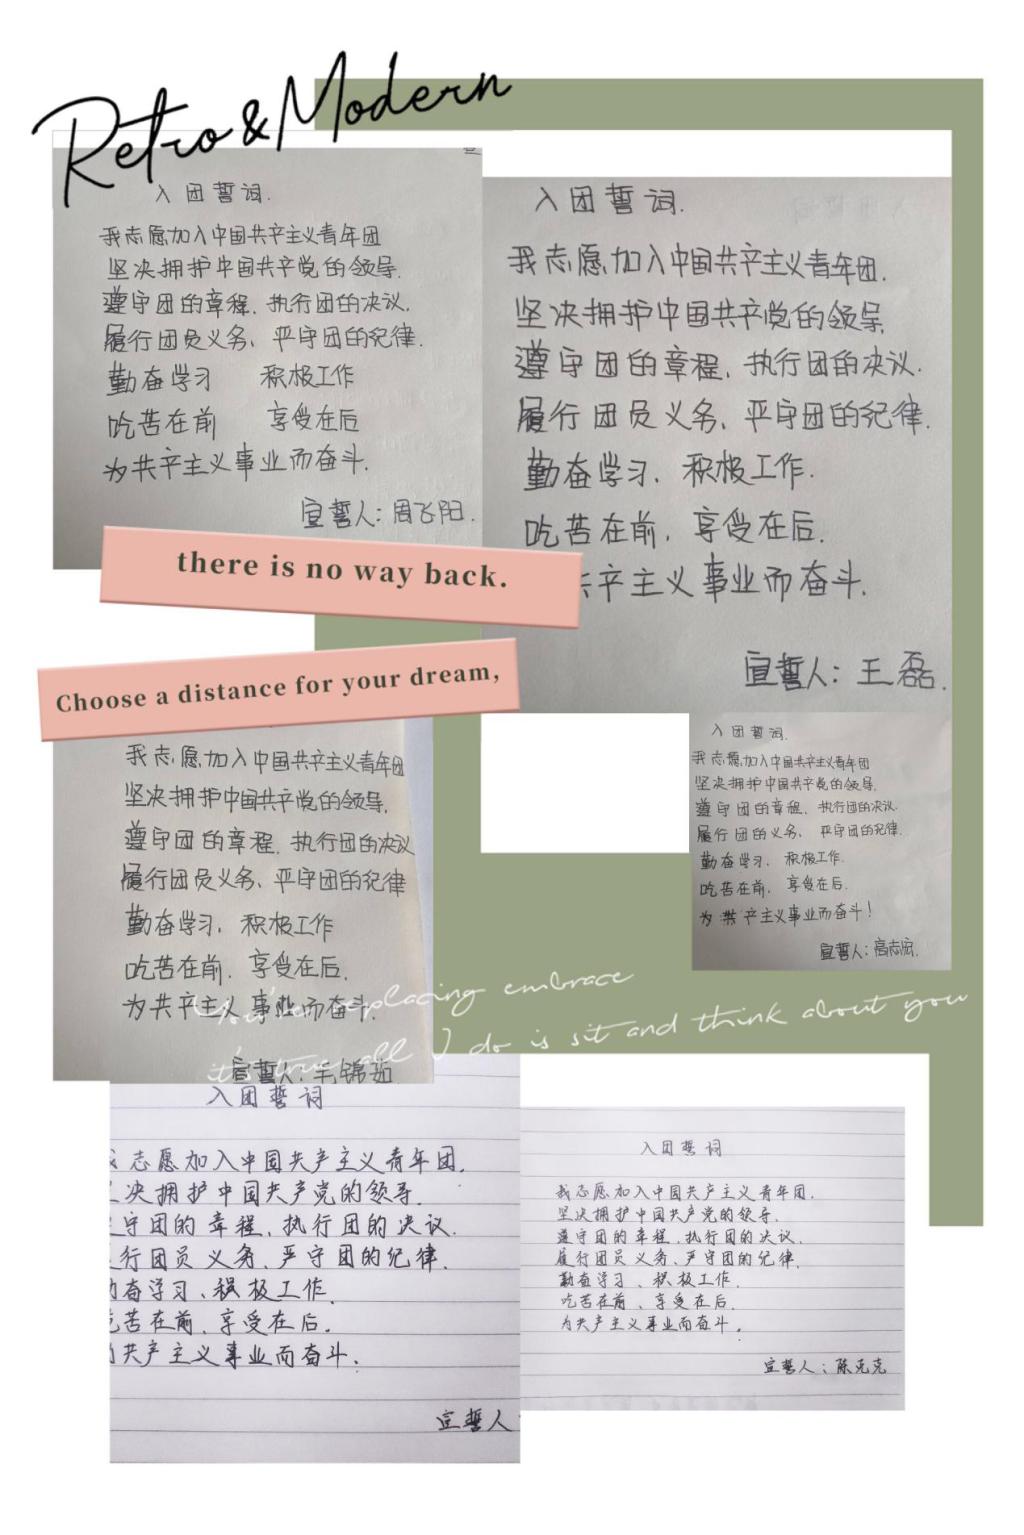 Retro & Modern
入团誓词.
我志愿加入中国共产主义青年团
坚决拥护中国共产党的领导.
遵守团的章程,执行团的决议.
履行团员义务、严守团的纪律.
勤奋学习 积极工作
吃苦在前 享受在后
为共产主义事业而奋斗.
宣誓人:周飞阳.
入团誓词.
我志愿加入中国共产主义青年团.
坚决拥护中国共产党的领导,
遵守团的章程,执行团的决议.
履行团员义务、严守团的纪律.
勤奋学习、积极工作.
吃苦在前,享受在后.
共产主义事业而奋斗.
宣誓人:王磊.
there is no way back.
Choose a distance for your dream,
我志愿加入中国共产主义青年团
坚决拥护中国共产党的领导.
遵守团的章程.执行团的决议
履行团员义务、严守团的纪律
勤奋学习,积极工作
吃苦在前.享受在后.
为共产主义事业而奋斗.
宣誓人:
入团誓词.
我志愿加入中国共产主义青年团
坚决拥护中国共产党的领导.
遵守团的章程、执行团的决议.
履行团的义务、严守团的纪律.
勤奋学习、积极工作.
吃苦在前、享受在后.
为共产主义事业而奋斗!
宣誓人:高志宏.
replacing embrace
it's true all I do is sit and think about you
入团誓词
志愿加入中国共产主义青年团.
决拥护中国共产党的领导.
守团的章程,执行团的决议.
行团员义务、严守团的纪律.
奋学习、积极工作.
苦在前、享受在后.
共产主义事业而奋斗.
宣誓人
入团誓词
我志愿加入中国共产主义青年团.
坚决拥护中国共产党的领导.
遵守团的章程,执行团的决议.
履行团员义务、严守团的纪律.
勤奋学习、积极工作.
吃苦在前、享受在后.
为共产主义事业而奋斗.
宣誓人:陈克克